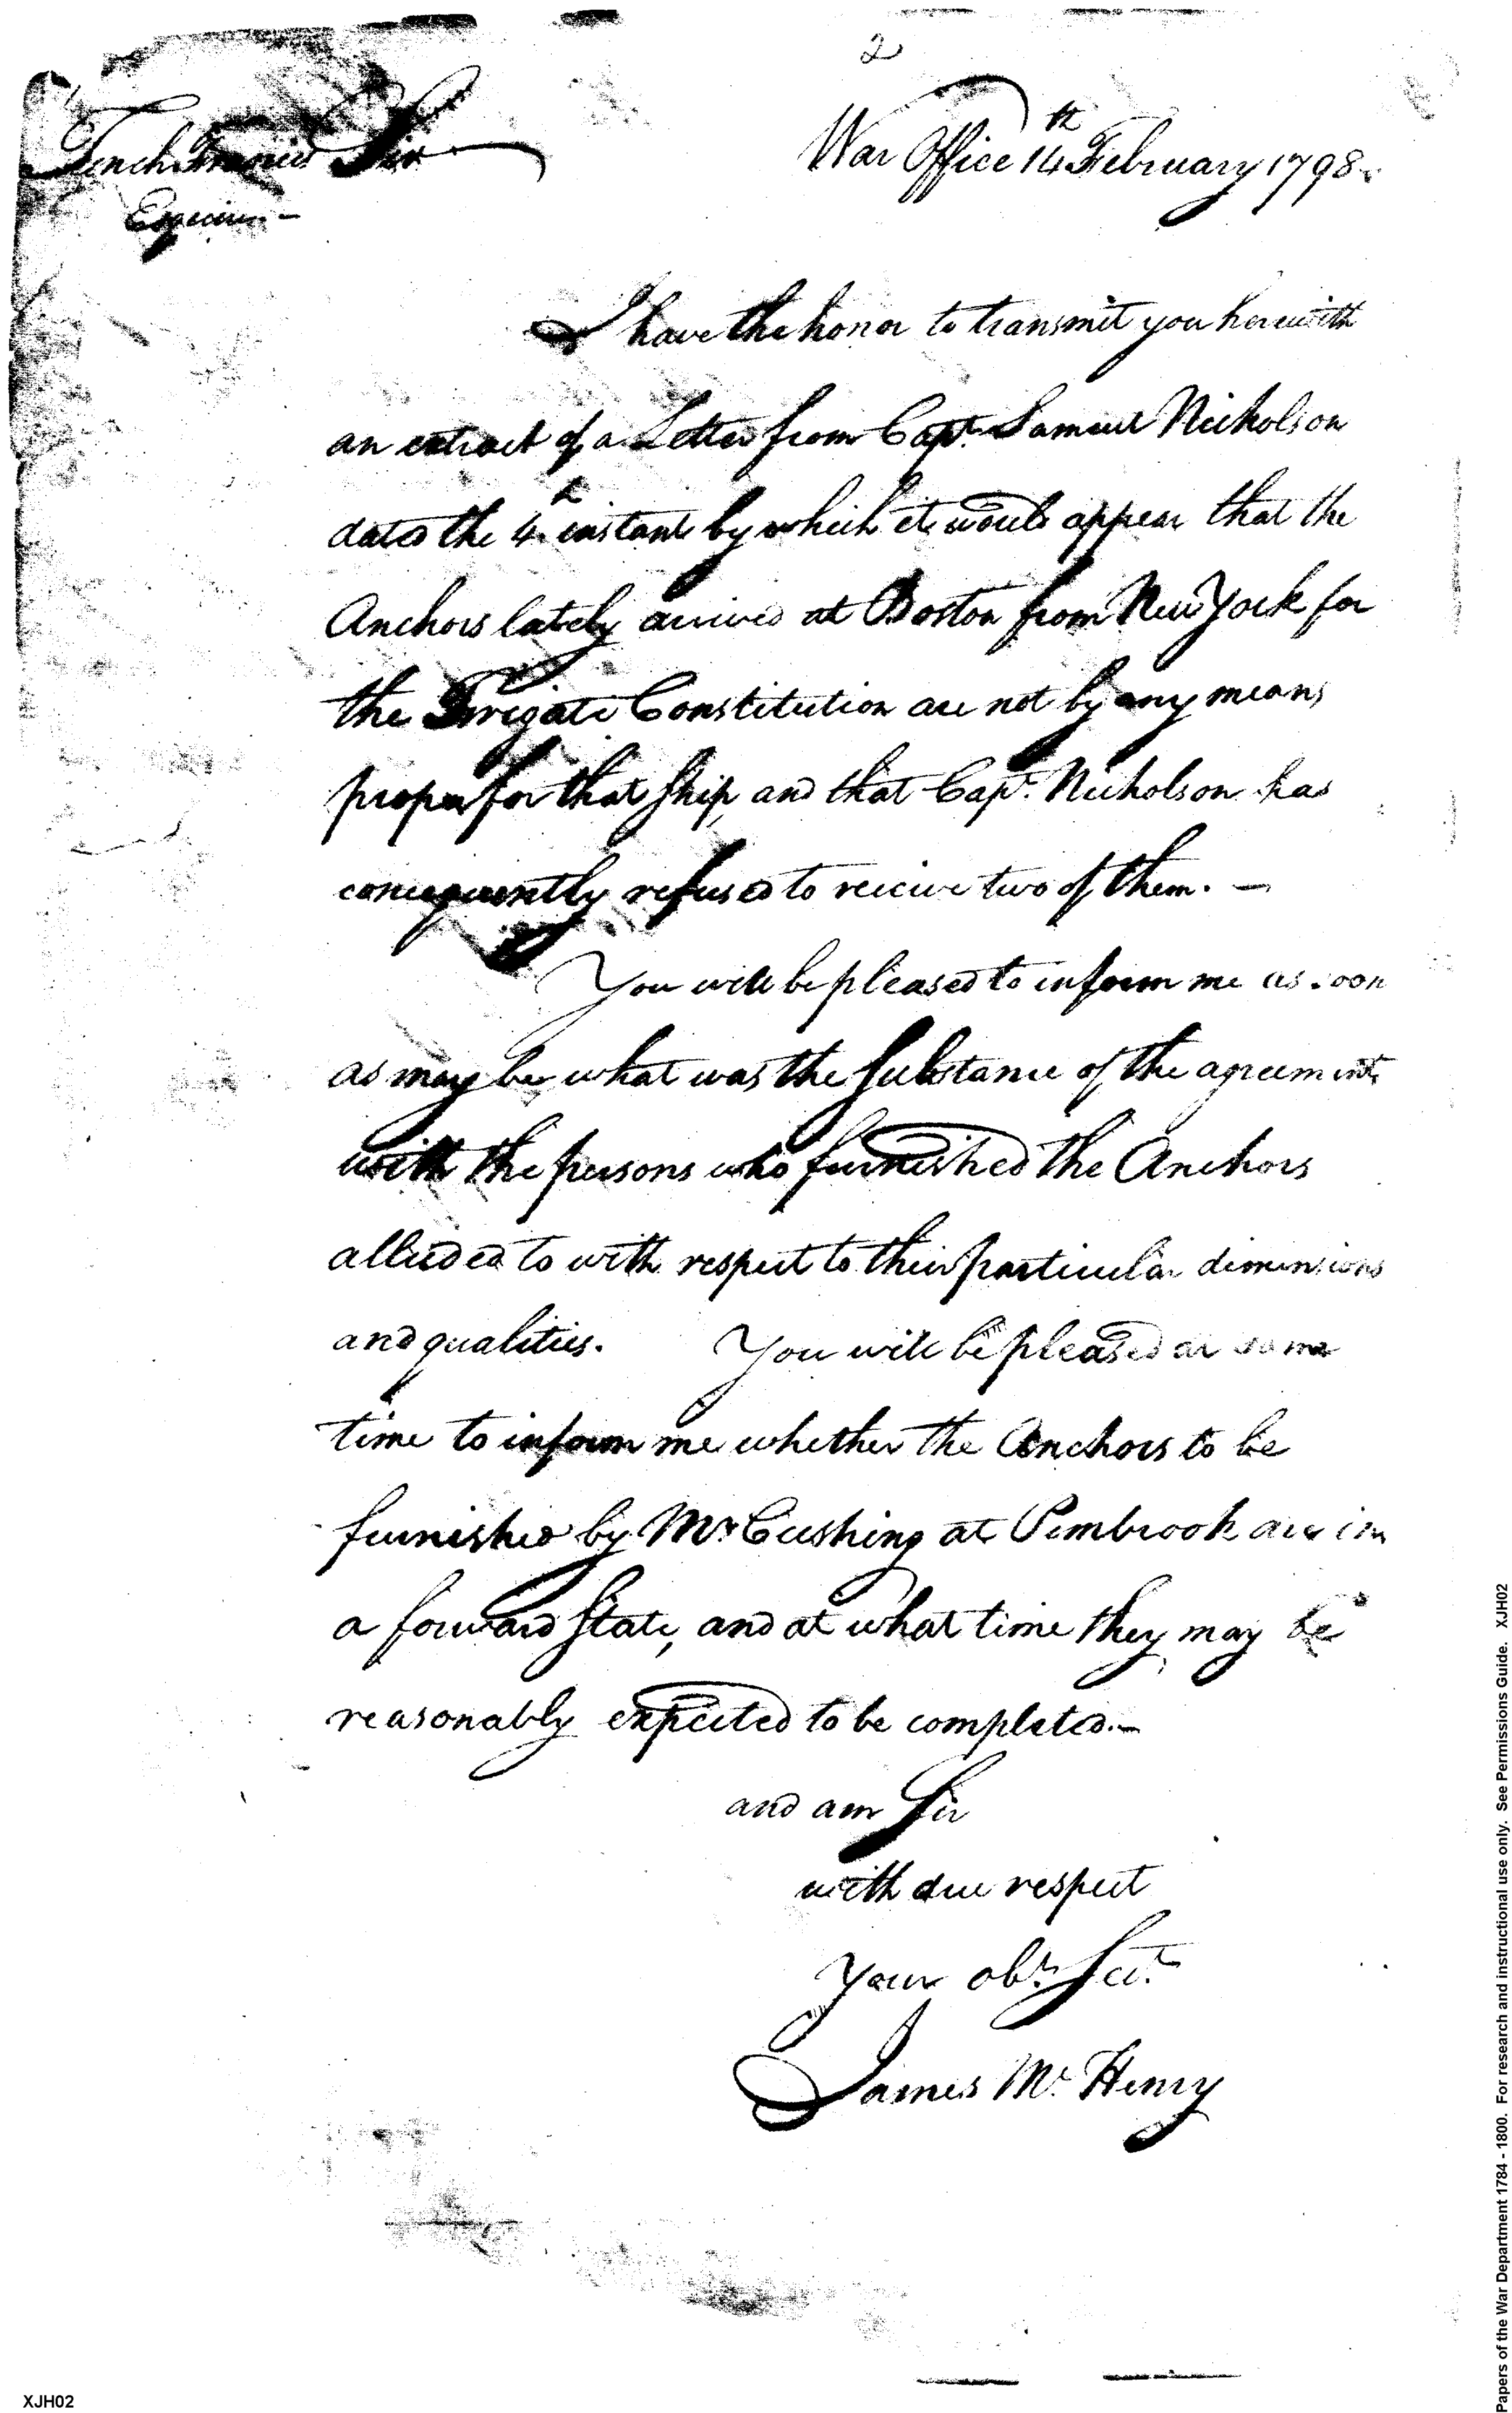 2
War Office 14th February 1798.
Tench Francis
Esquire. —
Sir
I have the honor to transmit you herewith
an extract of a Letter from Capt. Samuel Nicholson
dated the 4th instant by which it would appear that the
Anchors lately arrived at Boston from New York for
the Frigate Constitution are not by any means
proper for that Ship, and that Capt. Nicholson has
consequently refused to receive two of them. —
You will be pleased to inform me as soon
as may be what was the Substance of the agreement
with the persons who furnished the Anchors
alluded to with respect to their particular dimensions
and qualities. You will be pleased at same
time to inform me whether the Anchors to be
furnished by Mr Cushing at Pembrook are in
a forward State, and at what time they may be
reasonably expected to be completed. —
and am Sir
with due respect
Your obt. Sert.
James Mc. Henry
XJH02
Papers of the War Department 1784 - 1800. For research and instructional use only. See Permissions Guide. XJH02